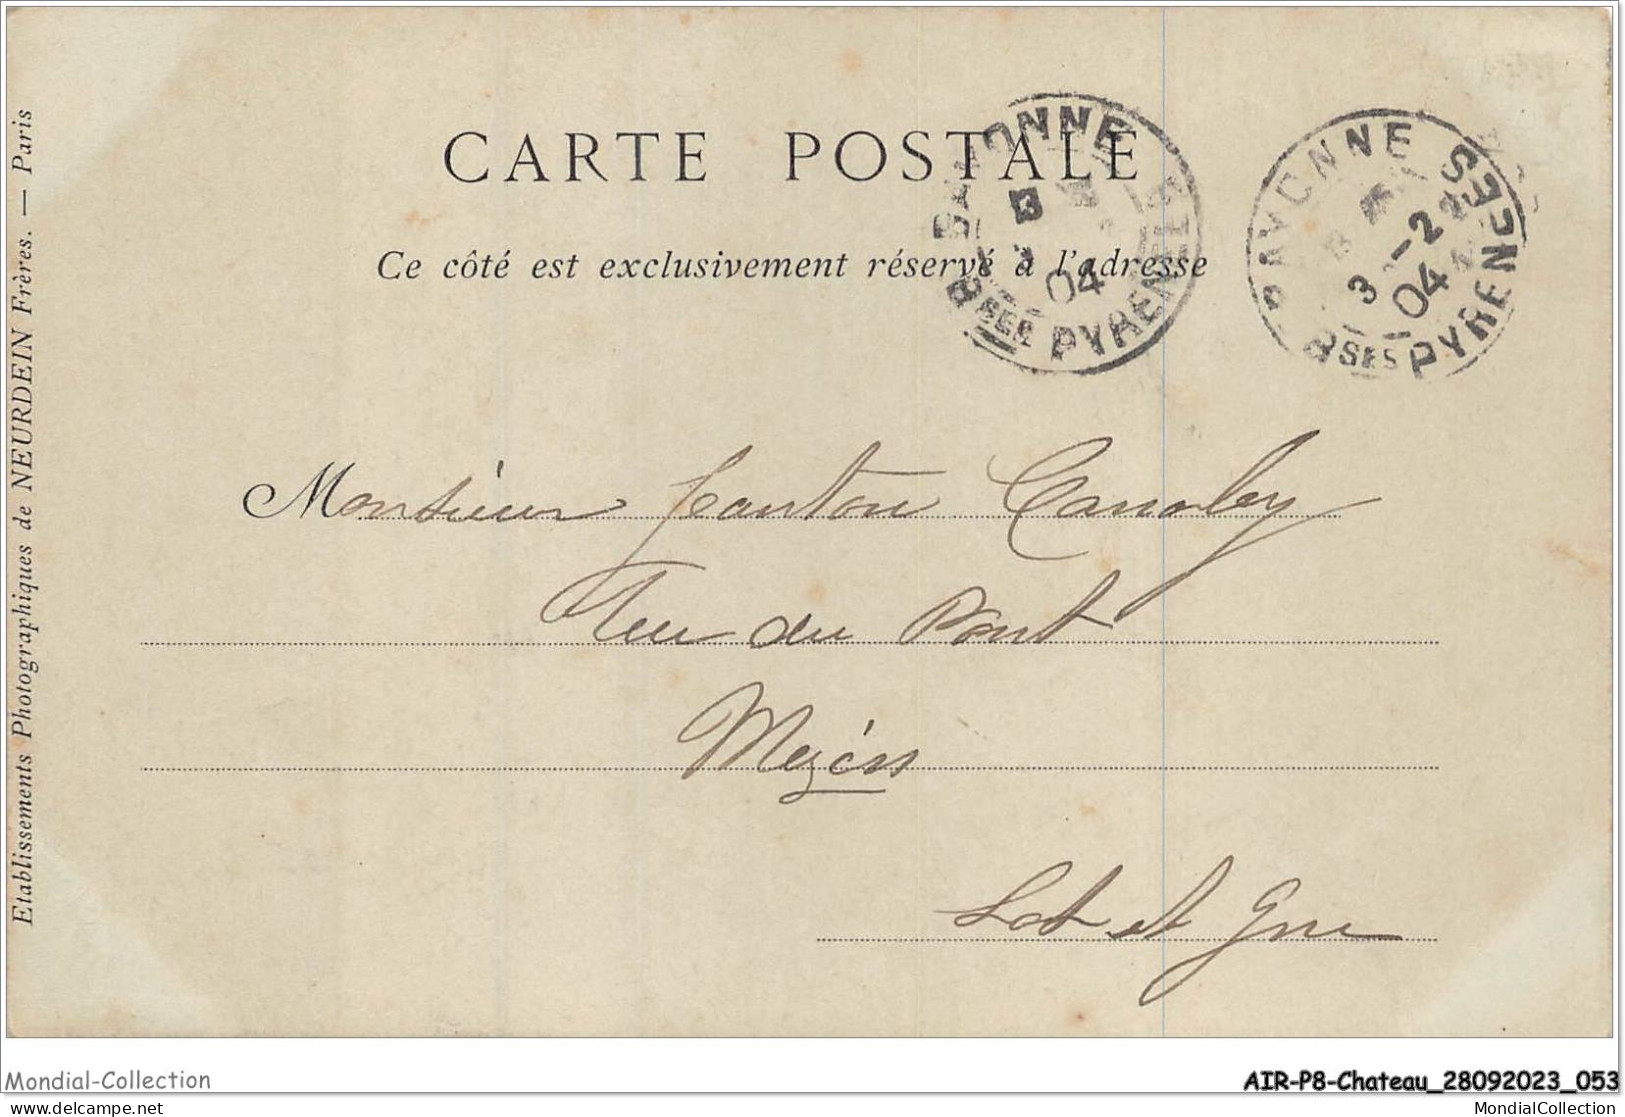 CARTE POSTALE
Ce côté est exclusivement réservé à l'adresse
BAYONNE
3
04
BSES PYRENEES
BAYONNE
3 -2
04
BSES PYRENEES
Monsieur
Rue du Pont
Mezin
Lot et Gne
Etablissements Photographiques de NEURDEIN Frères. — Paris
Mondial-Collection
AIR-P8-Chateau_28092023_053
delcampe.net
MondialCollection